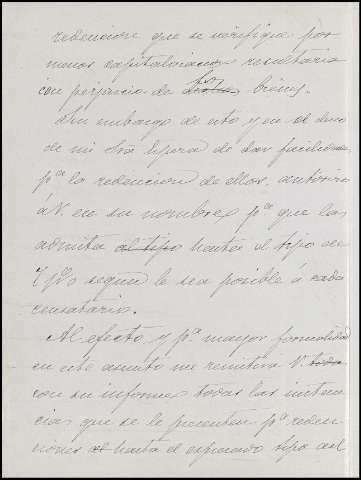 redencion que se verifique por
menos capitalizacion resultaria
con perjuicio de bienes.
Sin embargo de esto y en el deseo
de mi Sra Esposa de dar facilidades
pa la redencion de ellos, autorizo
á V. en su nombre pa que las
admita al tipo hasta el tipo de
7 p% segun le sea posible á cada
censatario.
Al efecto y pa mayor formalidad
en este asunto me remitirá V. todas
con su informe todas las instan
cias que se le presenten pa reden
ciones al hasta el espresado tipo del